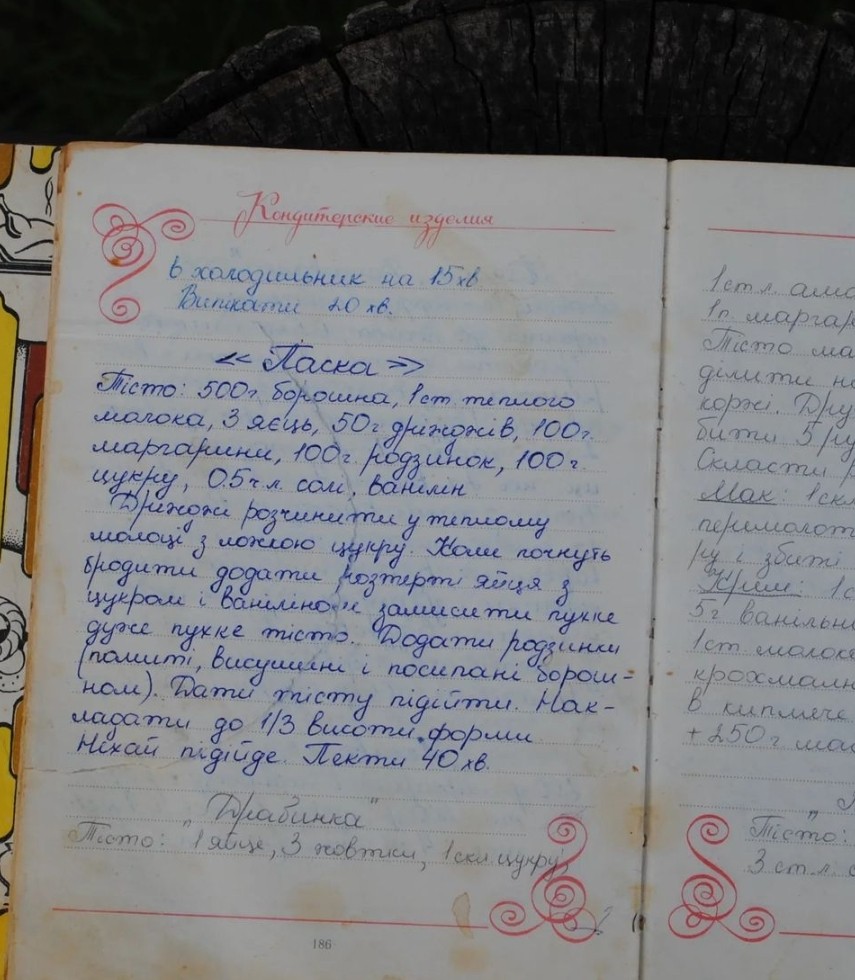 Кондитерские изделия
в холодильник на 15 хв
Випікати 20 хв.
« Паска »
Тісто: 500г. борошна, 1ст. теплого
молока, 3 яєць, 50г дріжджів, 100г.
маргарини, 100г. родзинок, 100г.
цукру, 0.5 ч л. солі, ванілін
Дріжжі розчинити у теплому
молоці з ложкою цукру. Коли почнуть
бродити додати розтерті яйця з
цукром і ваніліном замисити пухке
дуже пухке тісто. Додати родзинки
(помиті, висушині і посипані борош-
ном). Дати тісту підійти. Нак-
ладати до 1/3 висоти форми
Нехай підійде. Пекти 40 хв.
„Драбинка"
Тісто: 1 яйце, 3 жовтки, 1скл цукру,
186
1ст л.
1п. маргар
Тісто
ділити
коржі.
бити 5
Скласти
Мак: 1скл
перемолот
ру і збиті
Крем: 1с
5г ванільн
1ст. молок
крохмал
в кипляче
+250г
Тісто:
3 ст. л.